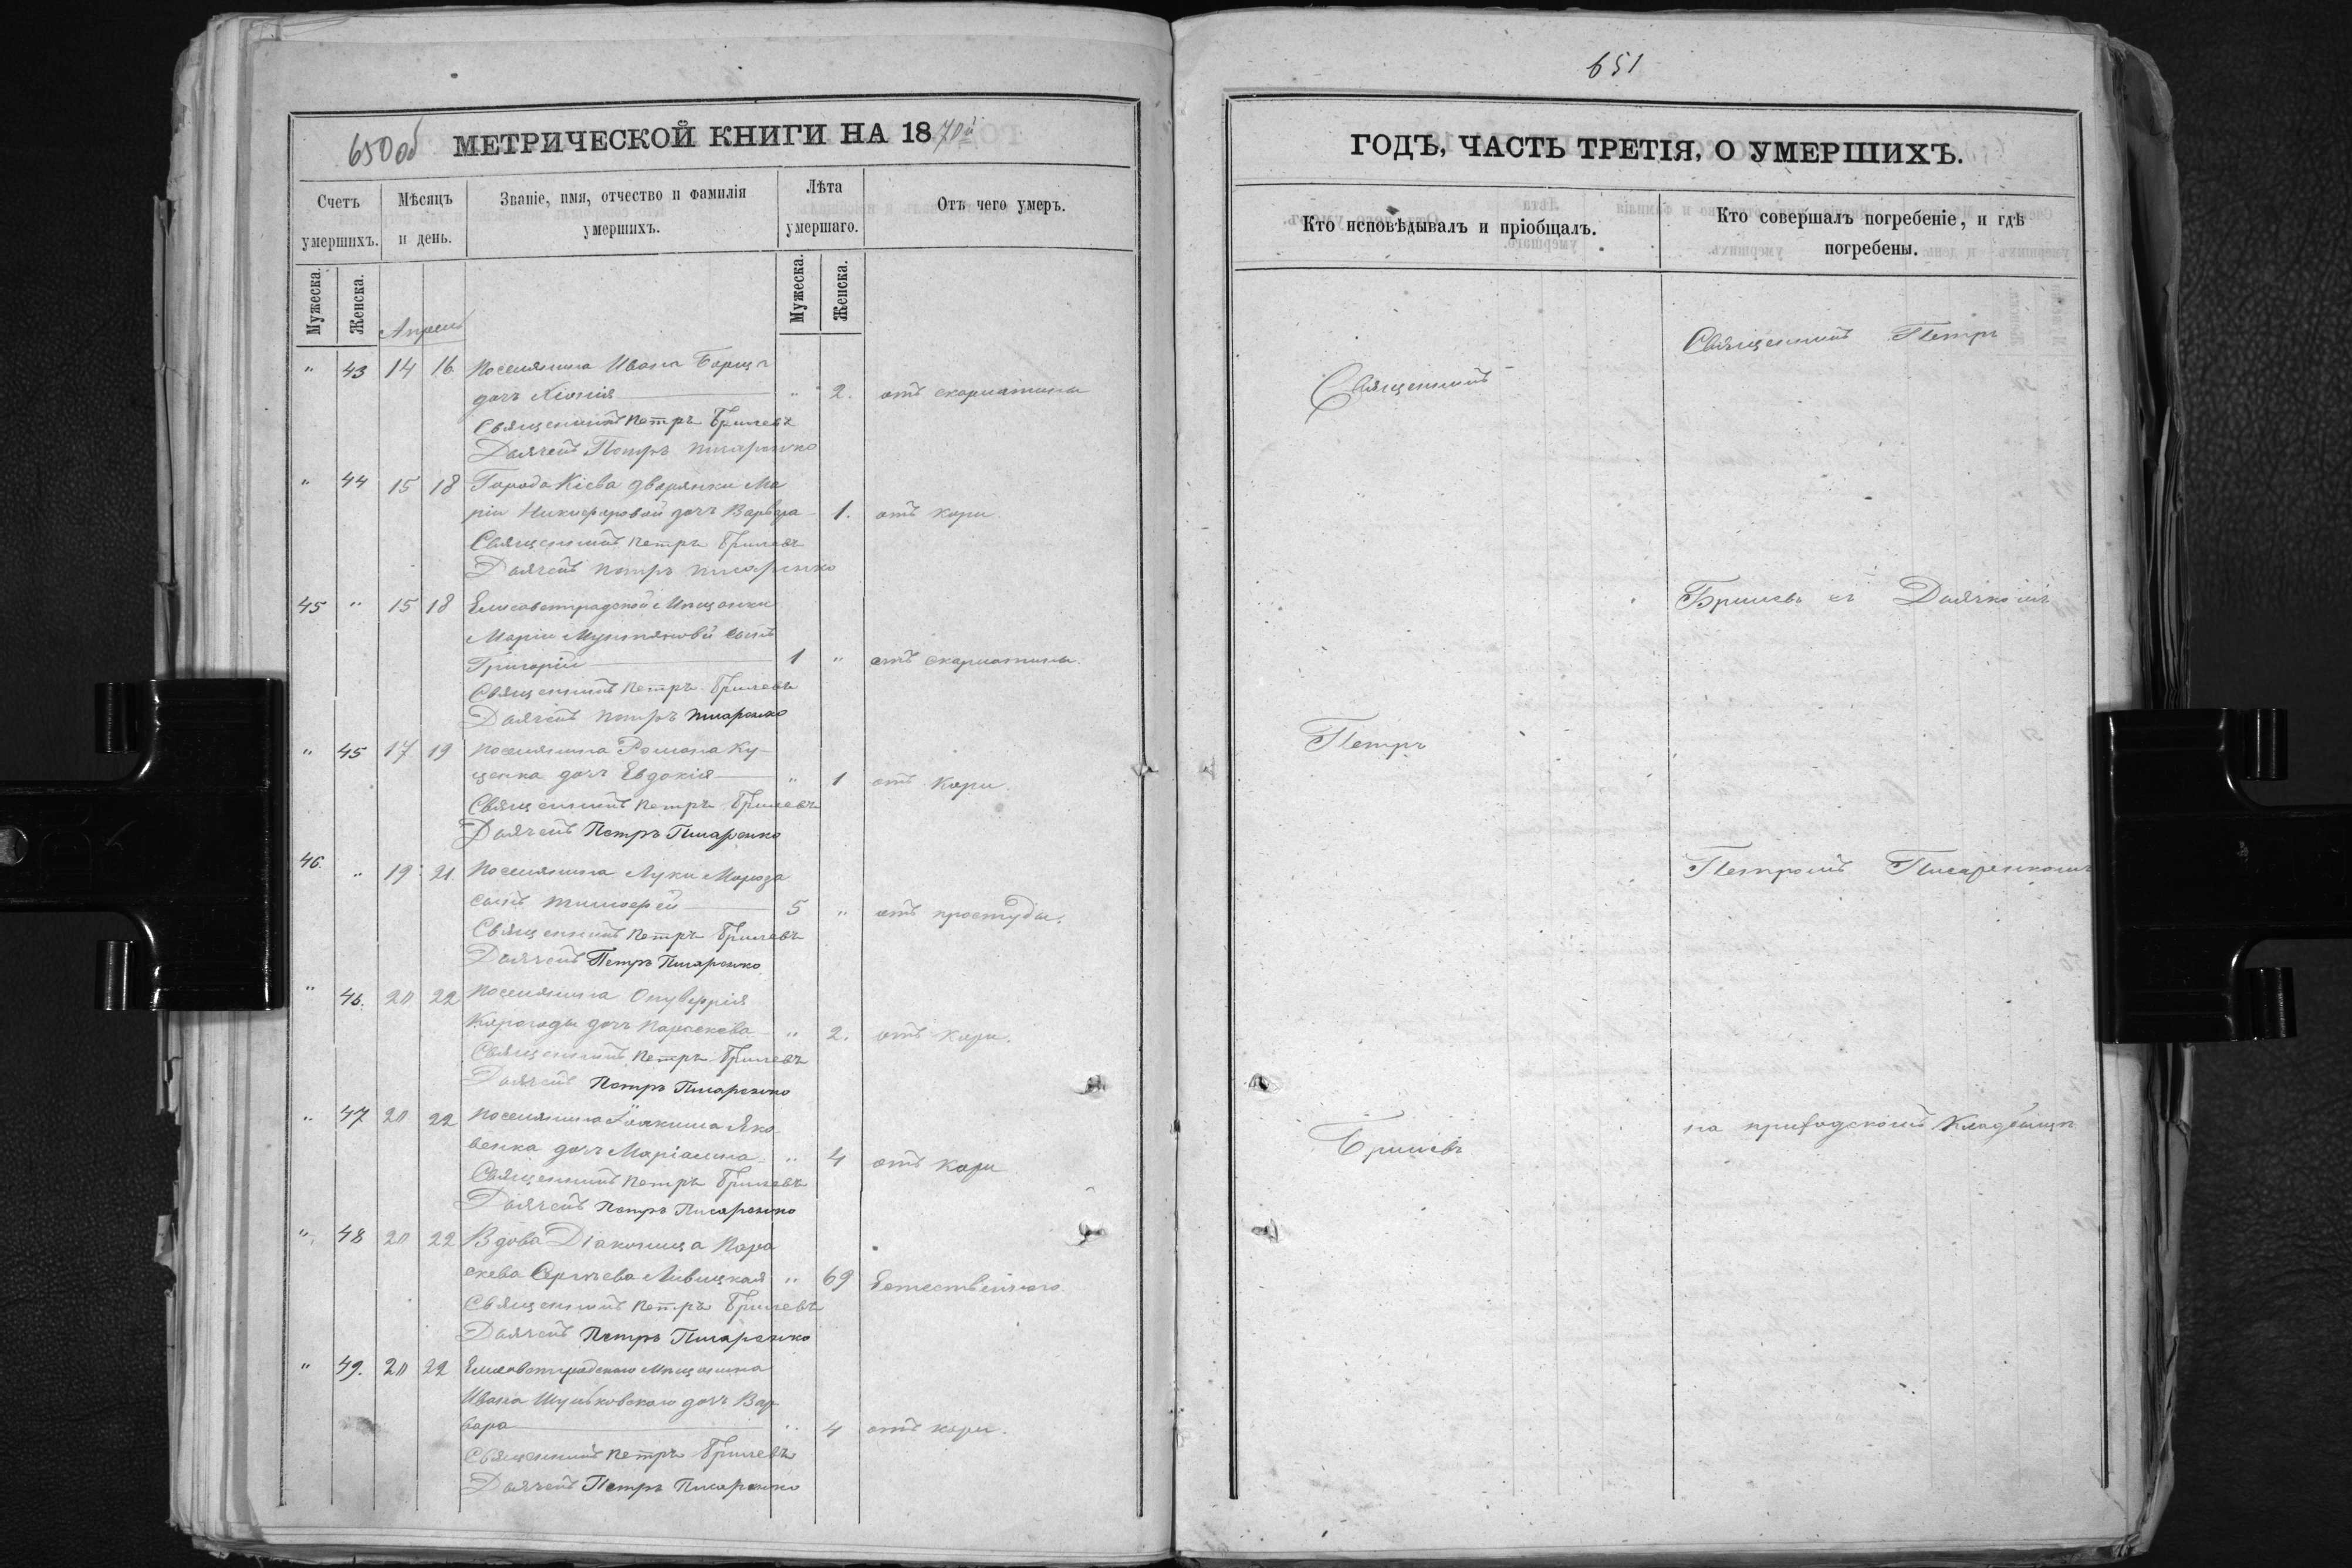 650 об МЕТРИЧЕСКОЙ КНИГИ НА 1870й
Счетъ умершихъ. Мѣсяцъ и день. Званіе, имя, отчество и фамилія умершихъ. Лѣта умершаго. Отъ чего умеръ.
Мужеска. Женска. Мужеска. Женска.
Апрель
" 43 14 16 Поселянина Ивана Борща
дочь Хіонія " 2. отъ скарлатины
Священникъ Петръ Бришевъ
Дьячекъ Петръ Писаренко
" 44 15 18 Города Кіева дворянки Ма
ріи Никифоровой дочь Варвара 1. отъ кори.
Священникъ Петръ Бришевъ
Дьячекъ Петръ Писаренко
45 " 15 18 Елисаветградской Мѣщанки
Маріи сынъ
Григорій 1 " отъ скарлатины.
Священникъ Петръ Бришевъ
Дьячекъ Петръ Писаренко
" 45 17 19 Поселянина Романа Ку-
ценка дочь Евдокія " 1 отъ кори.
Священникъ Петръ Бришевъ
Дьячекъ Петръ Писаренко
46. " 19 21. Поселянина Луки Мороза
сынъ Тимофей 5 " отъ простуды.
Священникъ Петръ Бришевъ
Дьячекъ Петръ Писаренко
" 46. 20 22 Поселянина Онуфрія
Корогоды дочь Параскева " 2. отъ кори.
Священникъ Петръ Бришевъ
Дьячекъ Петръ Писаренко
" 47 20 22 Поселянина Іоакима Яко
венка дочь Маріамна " 4 отъ кори
Священникъ Петръ Бришевъ
Дьячекъ Петръ Писаренко
" 48 20 22 Вдова Діаконица Пара
скева Сергѣева Левицкая " 69 Естественного.
Священникъ Петръ Бришевъ
Дьячекъ Петръ Писаренко
" 49. 20 22 Елисаветградского Мѣщанина
Ивана дочь Вар
вара " 4 отъ кори.
Священникъ Петръ Бришевъ
Дьячекъ Петръ Писаренко
651
ГОДЪ, ЧАСТЬ ТРЕТІЯ, О УМЕРШИХЪ.
Кто исповѣдывалъ и пріобщалъ.
Кто совершалъ погребеніе, и гдѣ
погребены.
Священникъ
Петръ
Бришевъ
Священникъ Петръ
Бришевъ съ Дьячкомъ
Петромъ Писаренкомъ
на приходскомъ Кладбищѣ